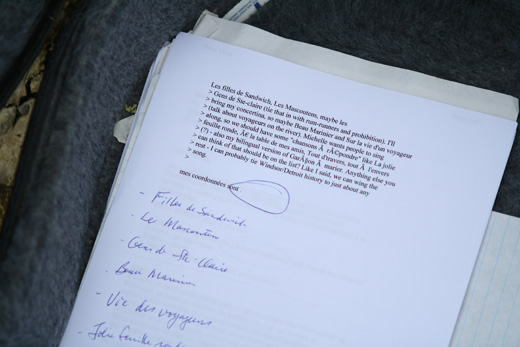 Les filles de Sandwich, Les Mascoutens, maybe les
> Gens de Ste-claire (tie that in with rum-runners and prohibition). I'll
> bring my concertina, so maybe Beau Marinier and Sur la vie d'un voyageur
> (talk about voyageurs on the river). Michelle wants people to sing
> along, so we should have some "chansons Ã rÃ©pondre" like La jolie
> feuille ronde, Ã€ la table de mes amis, Tout d'travers, tout Ã l'envers
> (?) - also my bilingual version of GarÃ§on Ã marier. Anything else you
> can think of that should be on the list? Like I said, we can wing the
> rest - I can probably tie Windsor/Detroit history to just about any
> song.
>
mes coordonnées sont
- Filles de Sandwich
- Le Mascouten
- Gens de Ste-Claire
- Beau Marinier
- Vie des voyageurs
- Jolie feuille